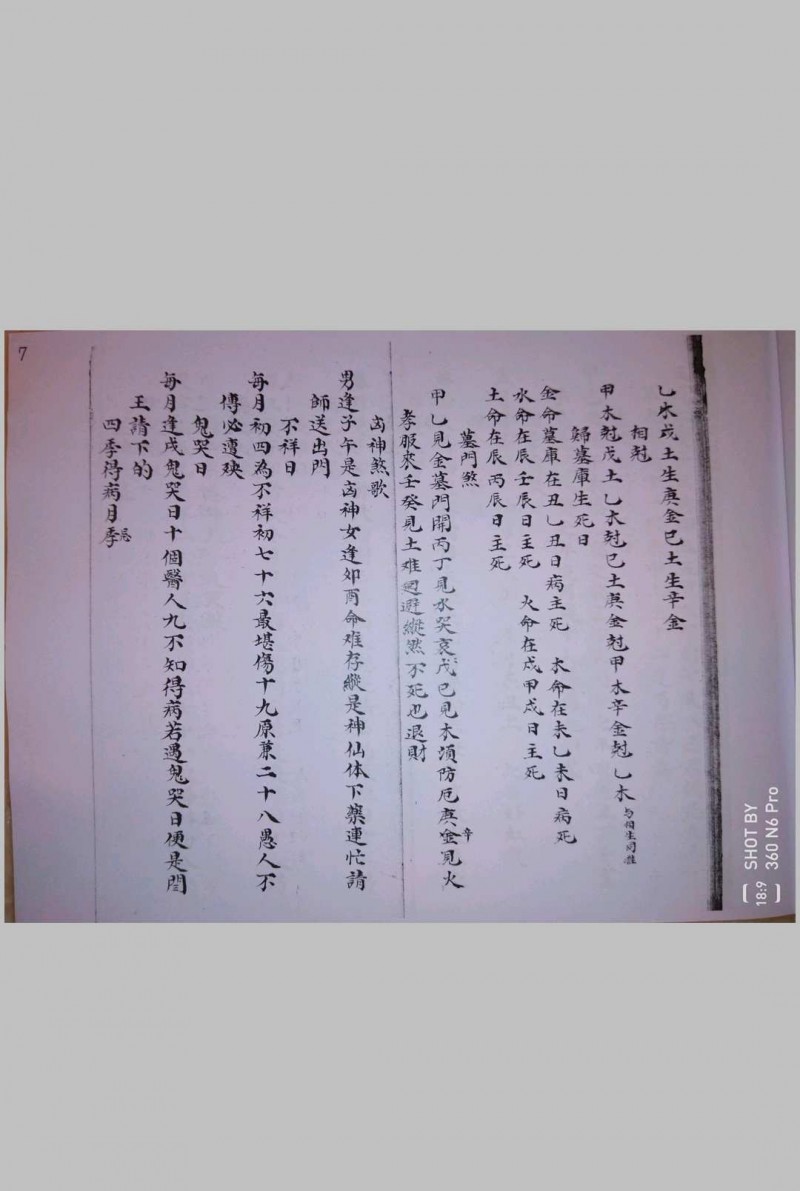 乙木戍土生庚金己土生辛金
相尅
甲木尅戊土乙木尅己土庚金尅甲木辛金尅乙木 与相生同推
歸墓庫生死日
金命墓庫在丑乚丑日病主死 木命在未乙未日病死
水命在辰壬辰日主死 火命在戍甲戍日主死
土命在辰丙辰日主死
墓門煞
甲乙見金墓門開丙丁見水哭哀哀戊己見木湏防厄庚辛金見火
孝服來壬癸見土难迴避縱然不死也退財
凶神煞歌
男逢子午是凶神女逢卯酉命难存縱是神仙体下藥連忙請
師送出門
不祥日
每月初四為不祥初七十六最堪傷十九原兼二十八愚人不
傳必遭殃
鬼哭日
每月逢戍鬼哭日十個醫人九不知得病若遇鬼哭日便是閻
王請下的
四季得病月季忌
7
SHOT BY
360 N6 Pro
18:9